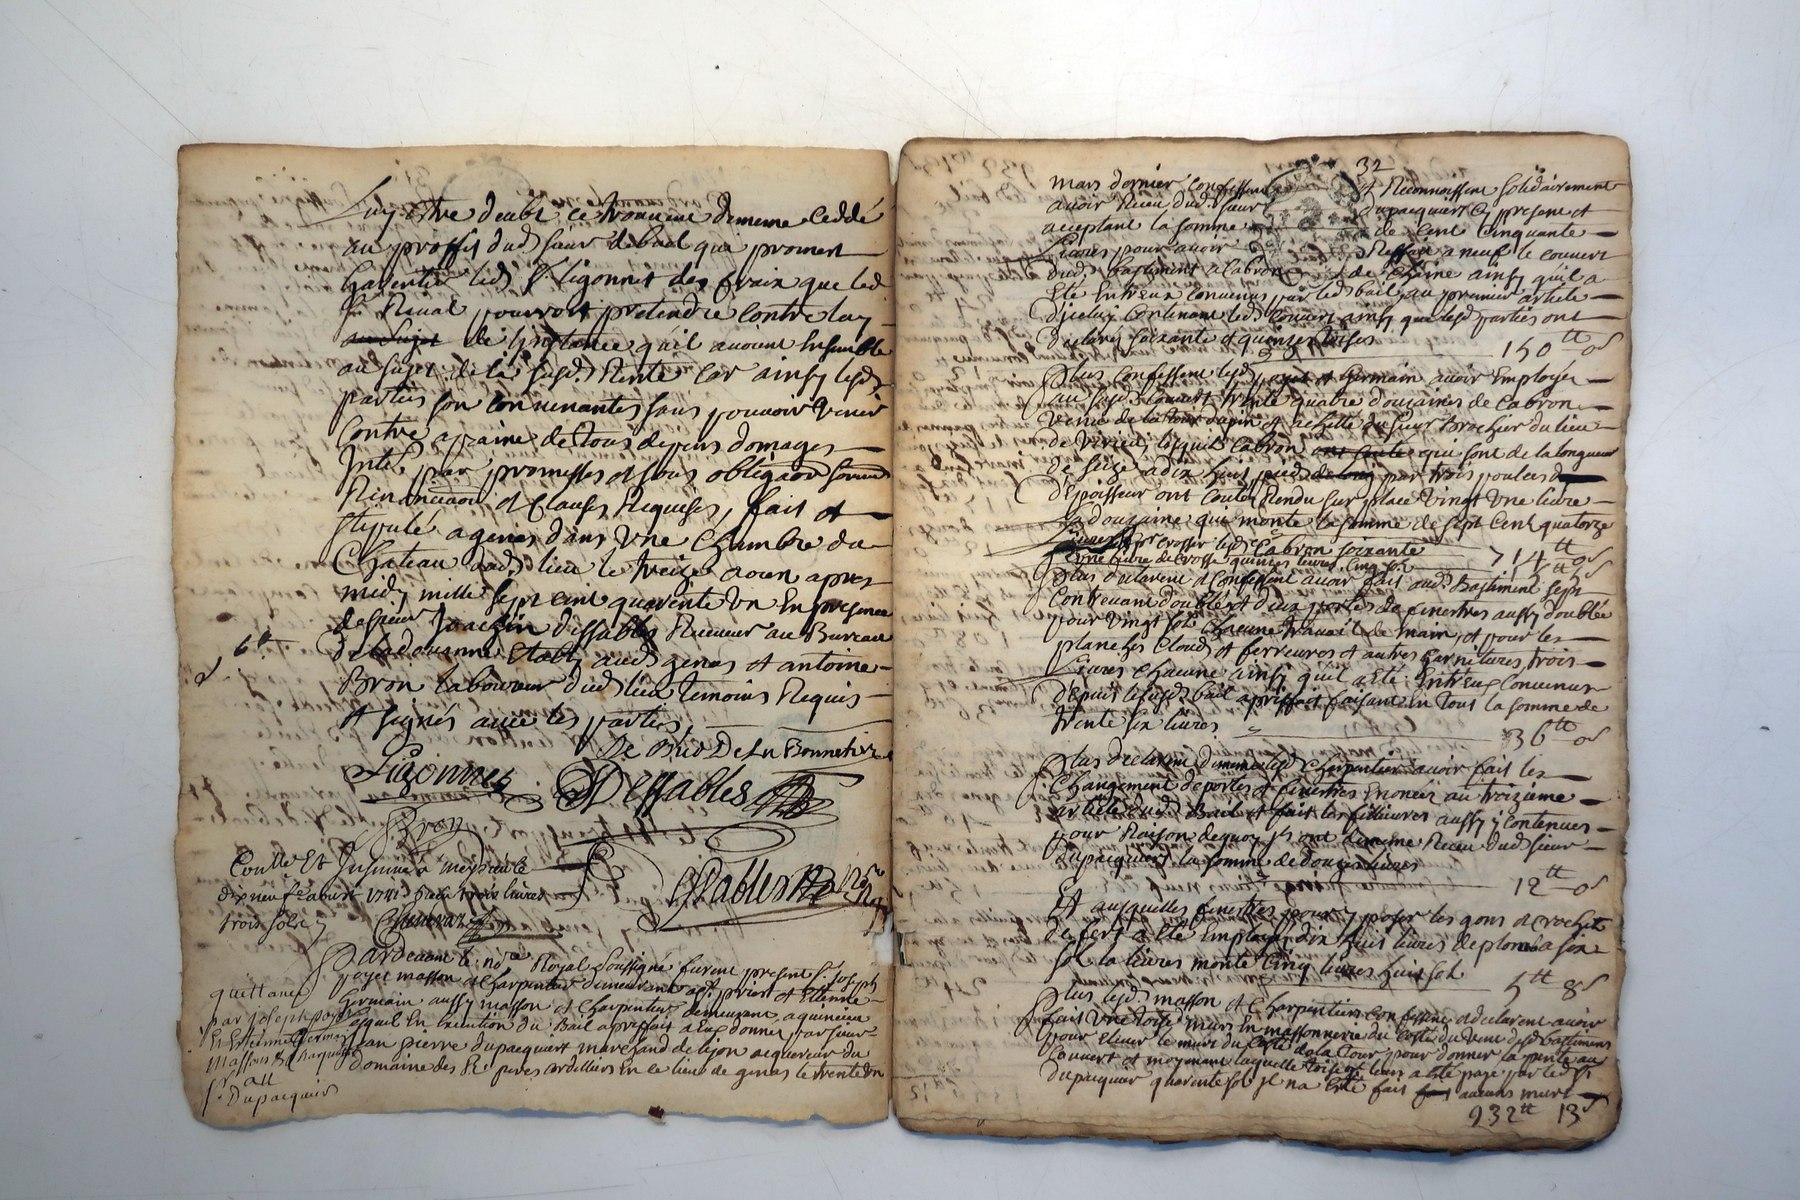 Luy estre deubt ce trouvent de meme ceddé
au proffit dud sieur debail que promert
garentir led Sr Ligonnet des fraix que led
Sr Rival pourroit pretendre contre luy
au sujet de l'instance qu'il avoient Ensemble
au sujet de la susd. Rente car ainsy lesd
parties son convenantes sans pouvoir venir
Contre a paine de tous depens domages
Inte. par promesses et sous obligaon soumis
Rinonciaon et clauses Requises, fait et
stipulé a genas dans une chambre du
Chateau dud. lieu le treize aoust apres
midy mille sept cent quarente un En presence
de sieur Joachin dessables Receveur au Bureau
de la douanne Etably aud genas et antoine
Bron laboureur dud lieu temoins Requis
et signés avec les parties.
6tt
De Brio De La Bonnetire
Ligonnet
Dessables
Bron
Conllé Et Insinué a meyzieu le
dix neufe aoust 1741 Receu trois livres
trois sols
Pardevant le nore Royal soussigné furent present Sr Joseph
payet masson et charpentier demeurant a St priest et Etienne
Germain aussy masson et Charpentier demeurant a
lesquel En Execution du Bail a prisfait a Eux donnez par sieur
Jean pierre dupacquiert marchand de lyon acquereur du
domaine des Rd peres Cordelliers En ce lieu de genas le trente un
quittance
par Joseph payet
Et Estienne Germain
Massons Et Charpentiers
au
Sr Dupacquier
32
mars dernier Confessent et Reconnoissent solidairement
avoir Receu dud sieur Dupacquiert Cy present et
aceptant la somme de cent cinquante
Livres pour avoir Reffait a neuf le couvert
dud. bastiment a Cabron de chaine ainsy qu'il a
Eté Entreux convenus par led bail au premier article
d'iceluy Contenant led. couvert ainsy que lesd parties ont
declaré soixante et quinze toises 150tt 0s
Plus Confessent lesd payet et Germain avoir Employer
au susd. couvert trante quatre douzaines de Cabron
venu de la tour dupin et achetté du sieur Brochier du lieu
de Virieu lesquels Cabron ont couté qui sont de la longueur
de seize a dix huit pieds de long par trois poulces d
d'epoisseur ont Couté Rendu sur place vingt une livre
la douzaine qui monte la somme de sept cent quatorze
livres 714tt 0s
Plus declarent et Confessent avoir fait aud. Bastiment sept
Contrevant doublés et deux portes de finestres aussy doublée
pour vingt sols chacune travail de main, et pour les
planches Clouds et ferreures et autres Garnitures, trois
Livres chacune ainsy qu'il a eté Entreux Convenus
depuis le susd. bail a prisfait faisant En tout la somme de
trente six livres 36tt 0s
Plus declarent de meme lesd Charpentier avoir fait les
Changement de portes et finestres Enoncez au troizieme
article dud. Bail et fait les fillieures aussy y contenues
pour Raison de quoy ils ont de meme Receu dud sieur
dupacquiert la somme de douze livres 12tt 0s
Et ausquelles finestres pour y poser les gons et crochet
de fert a eté Employé dix huit livres de plomb a six
sol la livres monte Cinq livres huit sol 5tt 8s
Plus lesd. masson et Charpentiers confessent et declarent avoir
fait une toise murs En massonnerie du Costé du vent dud bastiment
pour Elever le mur du Costé de la Tour pour donner la pente au
Couvert et moyenant laquelle toise et leur a eté payé par led Sr
dupacquier quarente sol jl na Esté fait aucuns murs
932tt 13s